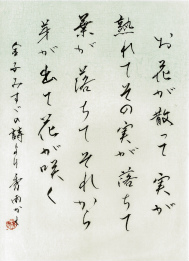 お花が散って実が
熟れてその実が落ちて
葉が落ちてそれから
芽が出て花が咲く
金子みすゞの詩より